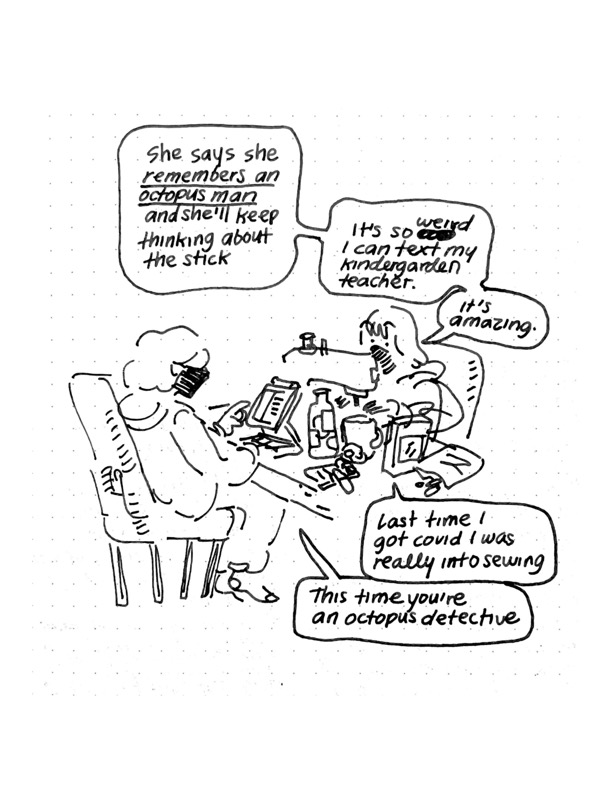 She says she
remembers an
octopus man
and she'll keep
thinking about
the stick
It's so weird
I can text my
kindergarden
teacher.
it's
amazing.
Last time I
got covid I was
really into sewing
This time you're
an octopus detective